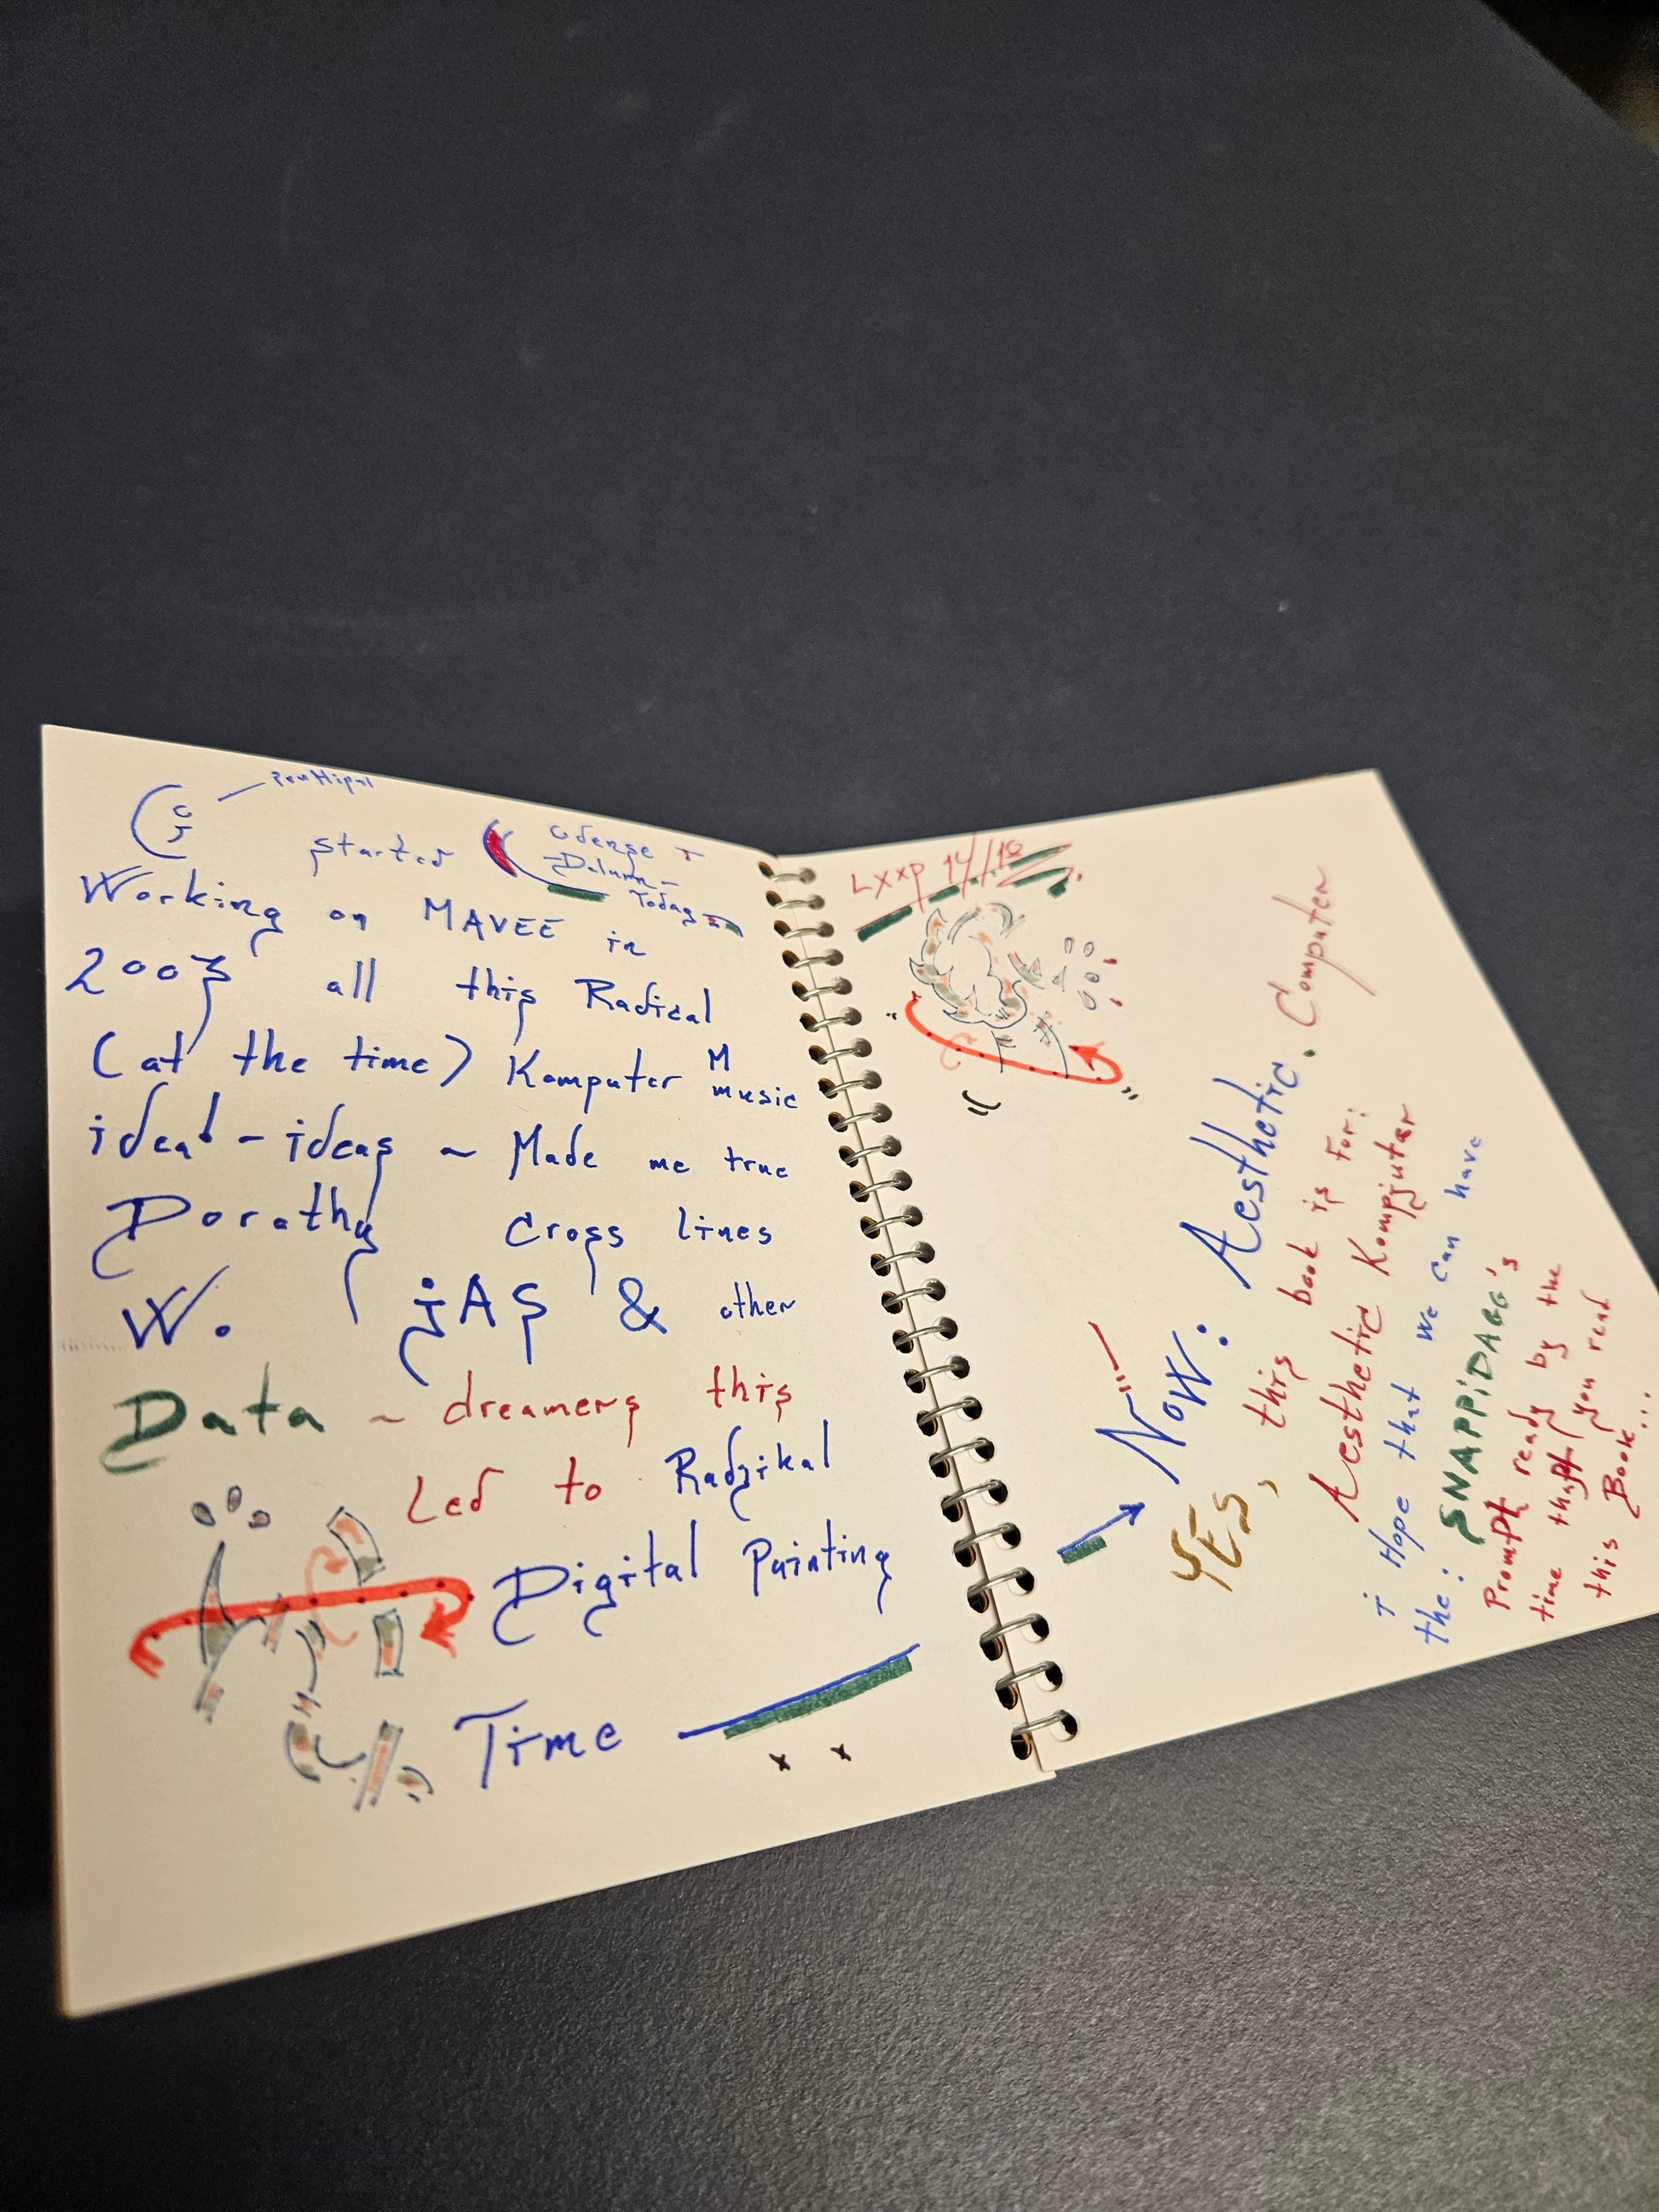 started
Odense
Dalum -
Today
Working on MAVEE in
2003 all this Radical
(at the time) Komputer M music
idea! - ideas ~ Made me true
Dorothy cross lines
W. jAS & other
Data ~ dreamers this
Led to Radzikal
Digital Painting
Time
x x
Lxxp 14/18
Now: Aesthetic. Computer
YES, this book is For:
Aesthetic Kompjuter
i Hope that we can have
the: SNAPPiDAGG's
Prompt ready by the
time you read
this Book...